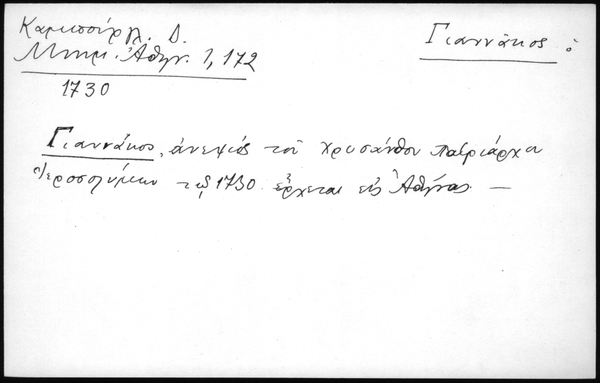 Καμπούρογλ. Δ.
Μνημ. Ἀθην. 1, 172
1730
Γιαννάκος ὁ
Γιαννάκος, ἀνεψιὸς τοῦ Χρυσάνθου Πατριάρχου
Ἱεροσολύμων τῷ 1730 ἔρχεται εἰς Ἀθήνας —